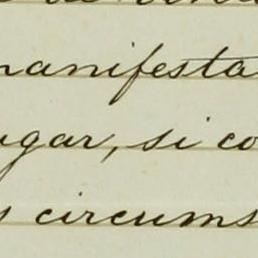 manifesta
ugar, si co
s circums